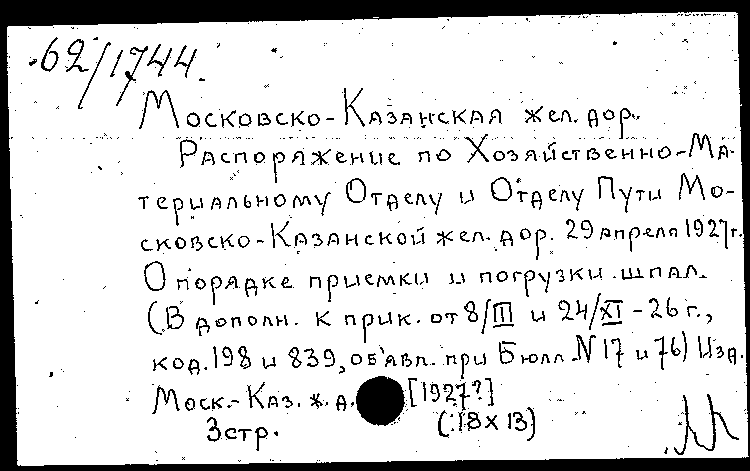 62/1744.
Московско-Казанская жел. дор.
Распоряжение по Хозяйственно-Ма-
териальному Отделу и Отделу Пути Мо-
сковско-Казанской жел. дор. 29 апреля 1927г.
О порядке приемки и погрузки шпал.
(В дополн. к прик. от 8/III и 24/XI-26 г.,
код. 198 и 839, об'явл. при Бюлл. N 17 и 76) Изд.
Моск.-Каз. ж. д. [1927?]
3 стр. (18 x 13)